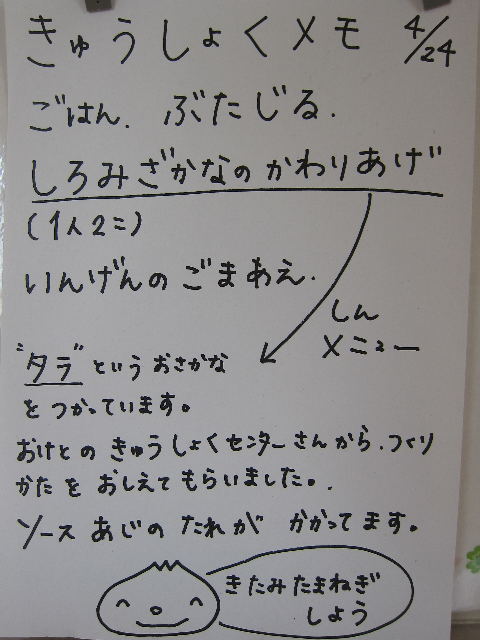 きゅうしょくメモ 4/24
ごはん. ぶたじる.
しろみざかなのかわりあげ
(1人2こ)
いんげんのごまあえ.
しん
メニュー
"タラ"というおさかな
をつかっています。
おけとのきゅうしょくセンターさんから、つくり
かたをおしえてもらいました。
ソースあじのたれがかかってます。
きたみたまねぎ
しよう